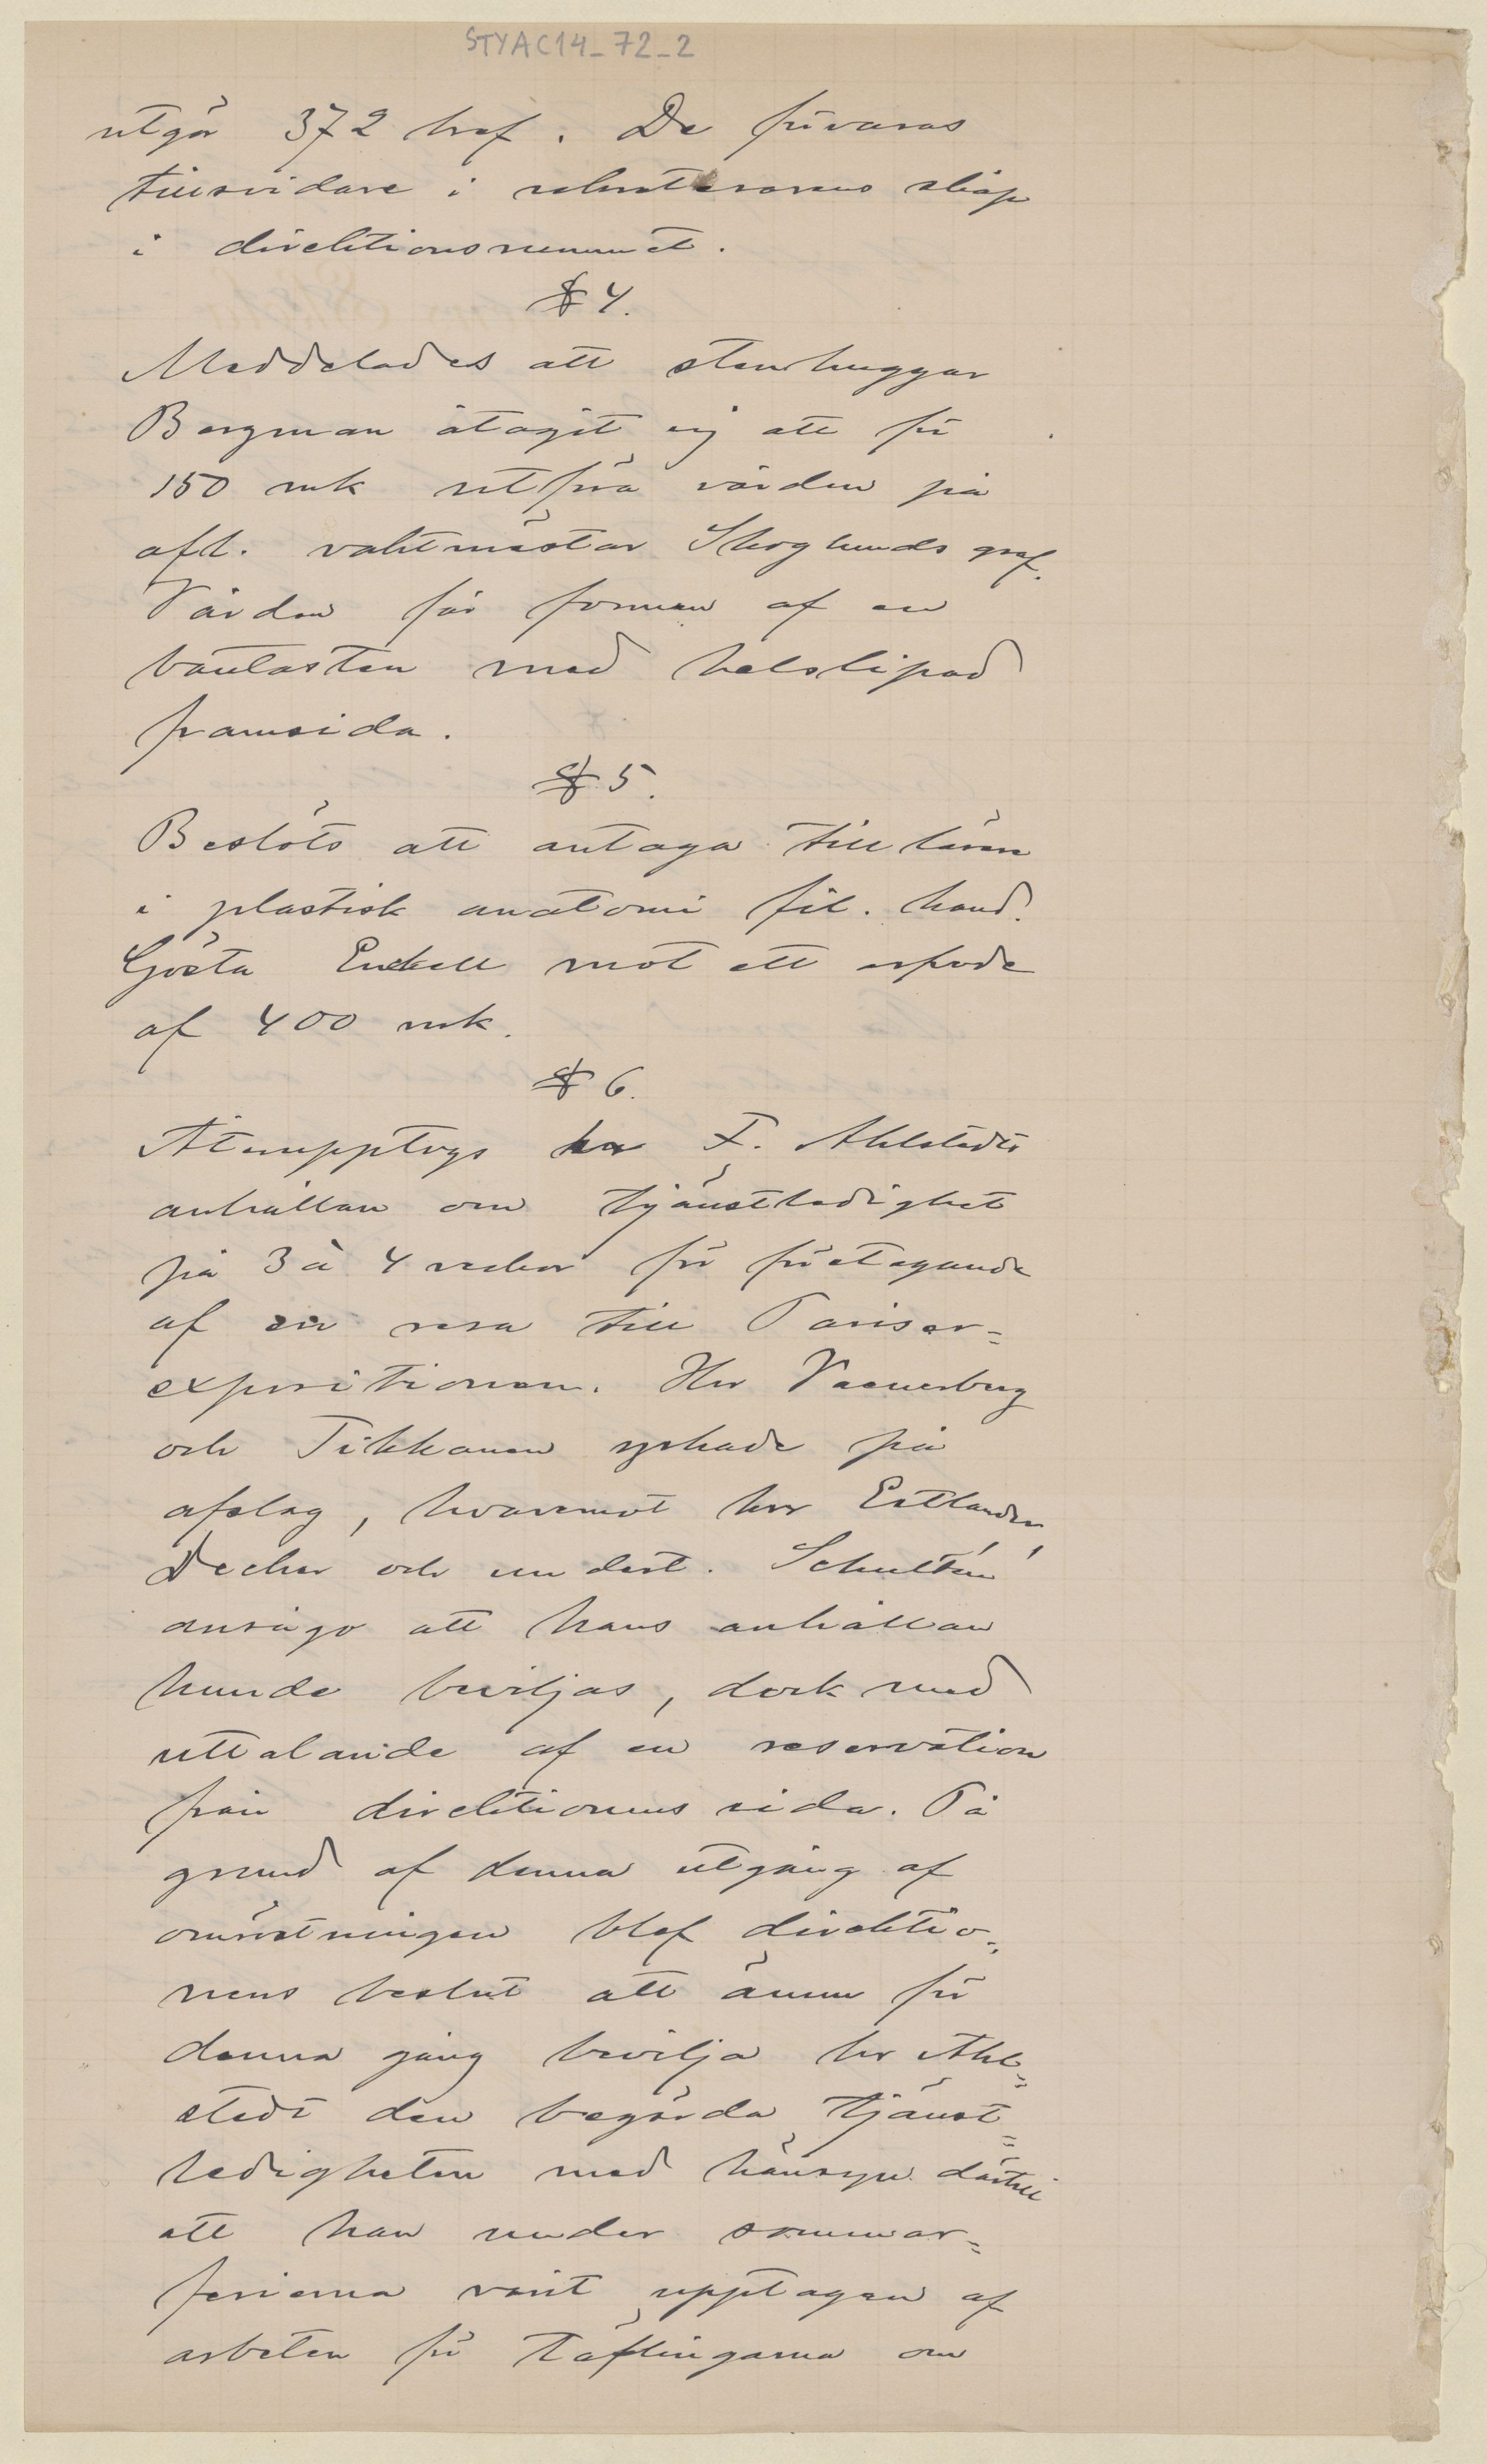 STYAC14_72_2
utgör 372 haf. De förvaras
tillsvidare i sekreterarens skåp
i direktionsrummet.
§ 4.
Meddelades att stenhuggar
Bergman åtagit sig att för
150 mk utföra vården på
afl. vaktmästar Skoglunds graf.
Vården får formen af en
bautasten med helslipad
framsida.
§ 5.
Beslöts att antaga till lärare
i plastisk anatomi fil. kand.
Gösta Enckell mot ett arfvode
af 400 mk.
§ 6.
Återupptogs hr F. Ahlstedts
anhållan om tjänstledighet
på 3 à 4 veckor för företagande
af en resa till Pariser=
expositionen. Hrr Vasenberg
och Tikkanen yrkade på
afslag, hvaremot hrr Estlander,
Decker och undert. Schultén
ansågo att hans anhållan
kunde beviljas, dock med
uttalande af en reservation
från direktionens sida. På
grund af denna utgång af
omröstningen blef direktio=
nens beslut att ännu för
denna gång bevilja hr Ahl=
stedt den begärda tjänst=
ledigheten med hänsyn därtill
att han under sommar=
ferierna varit upptagen af
arbeten för täflingarna om